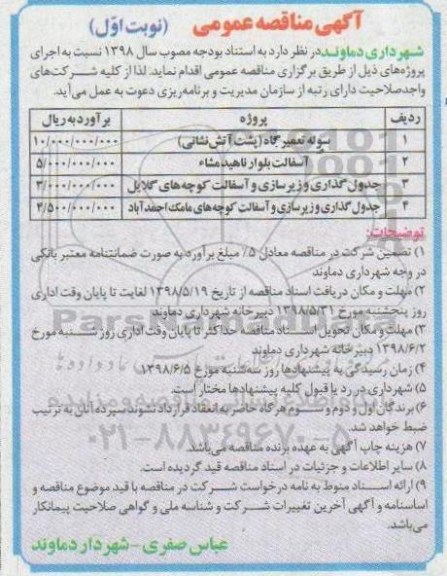 آگهی مناقصه عمومی (نوبت اوّل)
شهرداری دماوند در نظر دارد به استناد بودجه مصوب سال ۱۳۹۸ نسبت به اجرای
پروژه‌های ذیل از طریق برگزاری مناقصه عمومی اقدام نماید. لذا از کلیه شرکت‌های
واجدصلاحیت دارای رتبه از سازمان مدیریت و برنامه‌ریزی دعوت به عمل می‌آید.
ردیف پروژه برآورد به ریال
۱ سوله تعمیرگاه (پشت آتش نشانی) ۱۰/۰۰۰/۰۰۰/۰۰۰
۲ آسفالت بلوار ناهید مشاء ۵/۰۰۰/۰۰۰/۰۰۰
۳ جدول گذاری و زیرسازی و آسفالت کوچه های گلایل ۳/۰۰۰/۰۰۰/۰۰۰
۴ جدول گذاری و زیرسازی و آسفالت کوچه های مامک احمدآباد ۴/۵۰۰/۰۰۰/۰۰۰
توضیحات:
۱) تضمین شرکت در مناقصه معادل ۵٪ مبلغ برآورد به صورت ضمانتنامه معتبر بانکی
در وجه شهرداری دماوند
۲) مهلت و مکان دریافت اسناد مناقصه از تاریخ ۱۳۹۸/۵/۱۹ لغایت تا پایان وقت اداری
روز پنجشنبه مورخ ۱۳۹۸/۵/۳۱ دبیرخانه شهرداری دماوند
۳) مهلت و مکان تحویل اسناد مناقصه حداکثر تا پایان وقت اداری روز شنبه مورخ
۱۳۹۸/۶/۲ دبیرخانه شهرداری دماوند
۴) زمان رسیدگی به پیشنهادها روز سه‌شنبه مورخ ۱۳۹۸/۶/۵
۵) شهرداری در رد یا قبول کلیه پیشنهادها مختار است.
۶) برندگان اول و دوم و سوم هرگاه حاضر به انعقاد قرارداد نشوند سپرده آنان به ترتیب
ضبط خواهد شد.
۷) هزینه چاپ آگهی به عهده برنده مناقصه می‌باشد.
۸) سایر اطلاعات و جزئیات در اسناد مناقصه قید گردیده است.
۹) ارائه اسناد منوط به نامه درخواست شرکت در مناقصه با قید موضوع مناقصه و
اساسنامه و آگهی آخرین تغییرات شرکت و شناسه ملی و گواهی صلاحیت پیمانکار
می‌باشد.
عباس صفری - شهردار دماوند
۰۲۱-۸۸۳۴۹۶۷۰-۵